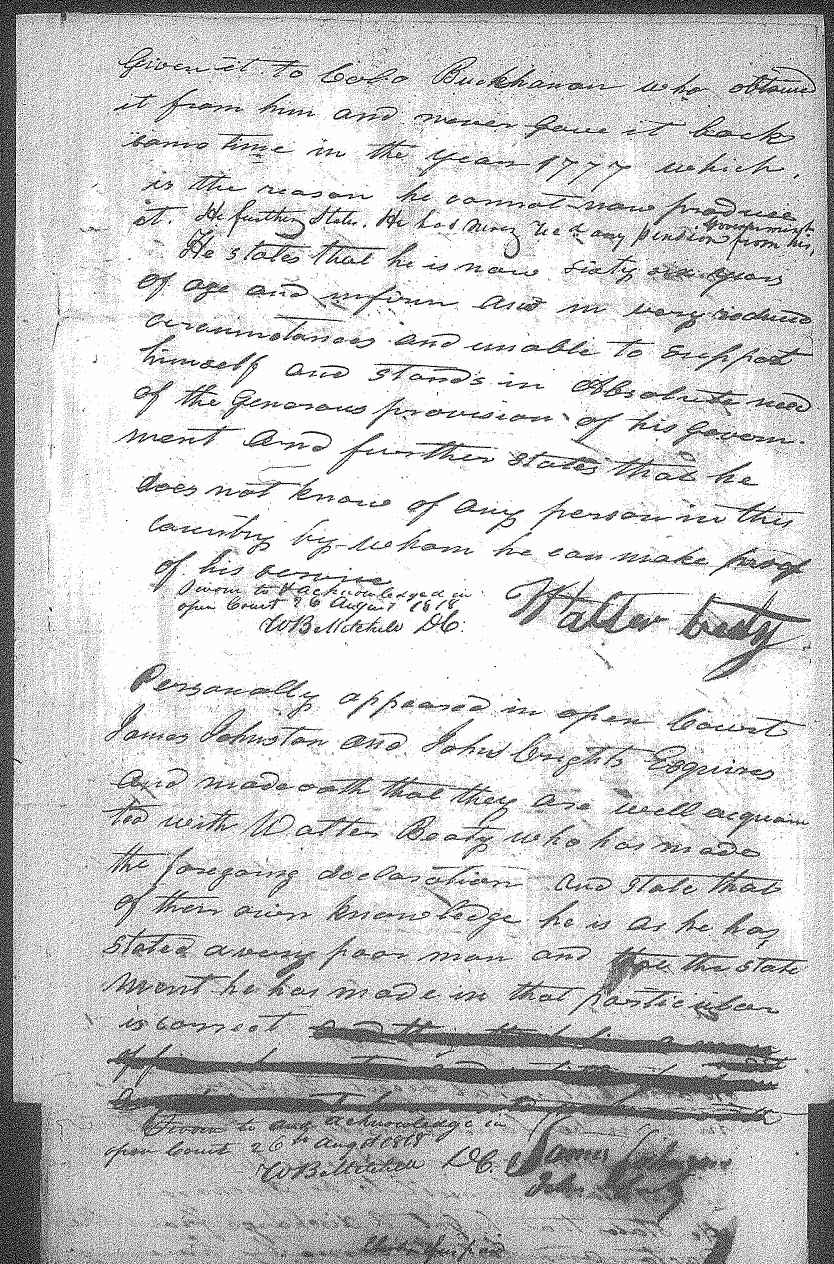 Given it to Colo Buckhanan who obtained
it from him and never gave it back
some time in the year 1777 which,
is the reason he cannot now produce
it. He further States. He has never rec'd any pension from his Government
He states that he is now sixty six years
of age and infirm and in very reduced
circumstances and unable to support
himself and stands in absolute need
of the generous provision of his govern-
ment and further states that he
does not know of any person in this
country by whom he can make proof
of his service
Sworn to & acknowledged in
open Court 26 August 1818
WB Mitchell DC.
Walter Beaty
Personally appeared in open Court
James Johnston and John Esquires
and made oath that they are well acquain
ted with Walter Beaty who has made
the foregoing declaration and state that
of their own knowledge he is as he has
stated a very poor man and the state
ment he has made in that particular
is correct
Sworn to and acknowledge in
open Court 26th Augst 1818
WB Mitchell DC.
James Johnston
John